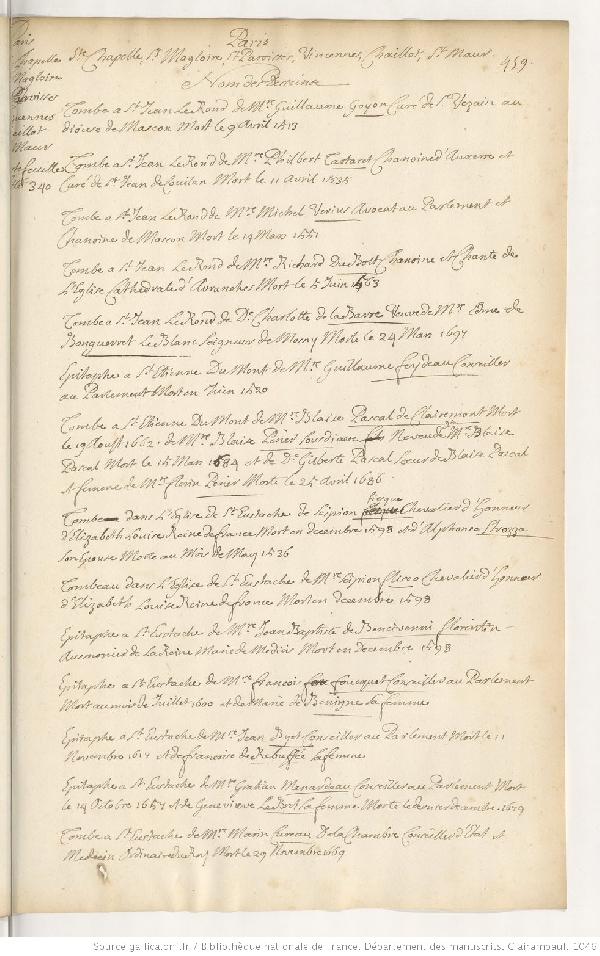 Paris
Ste Chapelle, St Magloire, St Paroisses, Vincennes, Chaillot, St Maur
459.
Paris
Chapelles
Magloire
Paroisses
Vincennes
Chaillot
Maur
de feuillet
340
Nom des Personnes
Tombe a St Jean Le Rond de Mre Guillaume Goyon Curé de St Vezain au
diocese de Mascon Mort le 9 Avril 1513
Tombe a St Jean Le Rond de Mre Philbert Tartaret Chanoine d'Auxerre et
Curé de St Jean de Mort le 11 Avril 1535
Tombe a St Jean Le Rond de Mre Michel Verius Avocat au Parlement et
Chanoine de Mascon Mort le 19 Mars 1551
Tombe a St Jean Le Rond de Mre Richard Chanoine et Chantre de
L'Eglise Cathedrale d'Avranches Mort le 5 Juin 1563
Tombe a St Jean Le Rond de De Charlotte de la Barre Veuve de Mre de
Bonguerret Le Blanc Seigneur de Morte le 24 Mars 1697
Epitaphe a St Etienne Du Mont de Mre Guillaume feydeau Conseiller
au Parlement Mort en Juin 1520
Tombe a St Etienne Du Mont de Mre Blaise Pascal de Clairemont Mort
le 19 Aoust 1662. de Mre Blaise Perier Soudiacre Neveu de Mre Blaise
Pascal Mort le 15 Mars 1684 et de De Gilberte Pascal Soeur de Blaise Pascal
et femme de Mre Florin Perier Morte le 25 avril 1686
Tombe dans L'Eglise de St Eustache de Scipion fiesque Chevalier d'Honneur
d'Elizabeth Louise Reine de france Mort en decembre 1598 et d'Alphonsa Strozza
son Epouse Morte au Mois de May 1536
Tombeau dans L'Eglise de St Eustache de Mre Scipion Chevalier d'Honneur
d'Elizabeth Louise Reine de france Mort en decembre 1598
Epitaphe a St Eustache de Mre Jean Baptiste de Bencivenni florentin
Aumonier de La Reine Marie de Medicis Mort en Decembre 1598
Epitaphe a St Eustache de Mre francois foucquet Conseiller au Parlement
Mort au mois de Juillet 1600 et de Marie de Benigne sa femme
Epitaphe a St Eustache de Mre Jean Dyot Conseiller au Parlement Mort le 11
Novembre 1617 et de francoise de Rebuffée sa femme
Epitaphe a St Eustache de Mre Gratian Menardeau Conseiller au Parlement Mort
le 14 Octobre 1657 et de Genevieve sa femme Morte le decembre 1659
Tombe a St Eustache de Mre Marin De la Chambre Conseiller d'Etat et
Medecin Ordinaire du Roy Mort le 29 Novembre 1669
Source gallica.bnf.fr / Bibliothèque nationale de France. Département des manuscrits. Clairambault 1046